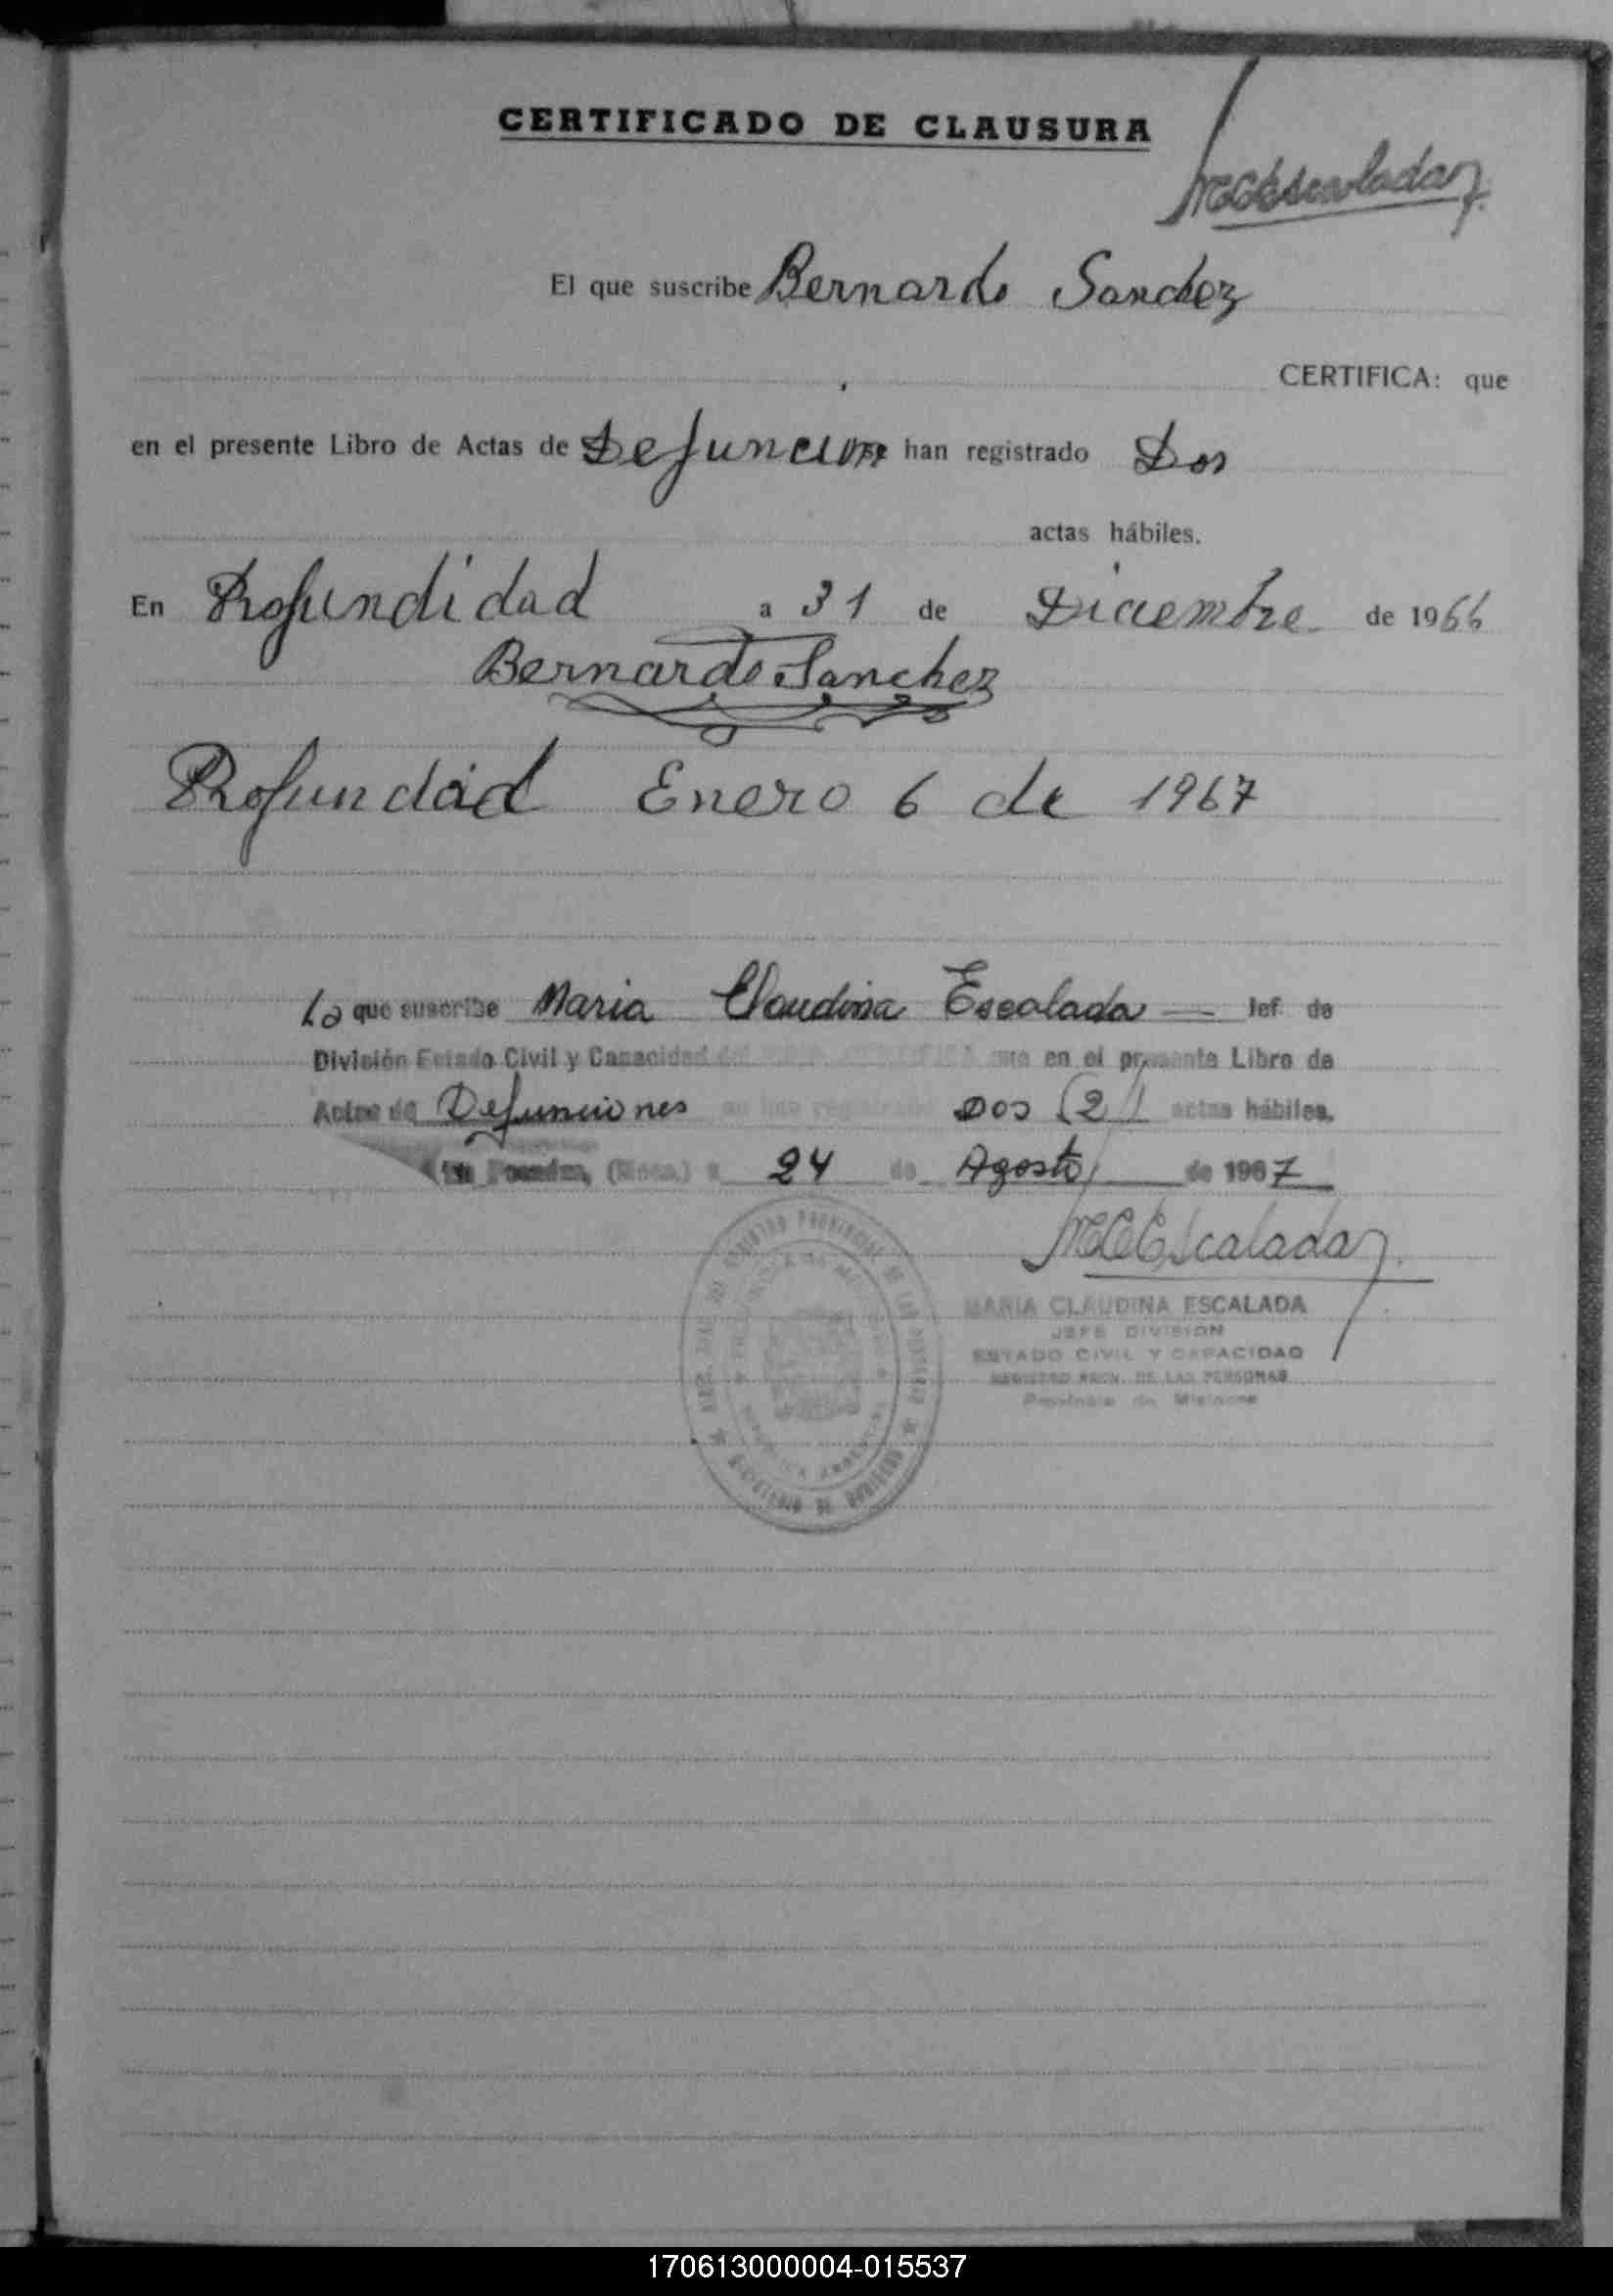 CERTIFICADO DE CLAUSURA
MCEscalada
El que suscribe Bernardo Sanchez
CERTIFICA: que
en el presente Libro de Actas de Defuncion se han registrado Dos
actas hábiles.
En Profundidad a 31 de Diciembre de 1966
Bernardo Sanchez
Profundad Enero 6 de 1967
La que suscribe Maria Claudina Escalada — Jef de
División Estado Civil y Capacidad del que en el presente Libro de
Actas de Defunciones se han registrado Dos (2) actas hábiles.
En Posadas, (Mnes.) a 24 de Agosto de 1967
MCEscalada
MARIA CLAUDINA ESCALADA
JEFE DIVISION
ESTADO CIVIL Y CAPACIDAD
REGISTRO PROV. DE LAS PERSONAS
Provincia de Misiones
REGISTRO PROVINCIAL DE LAS PERSONAS
170613000004-015537